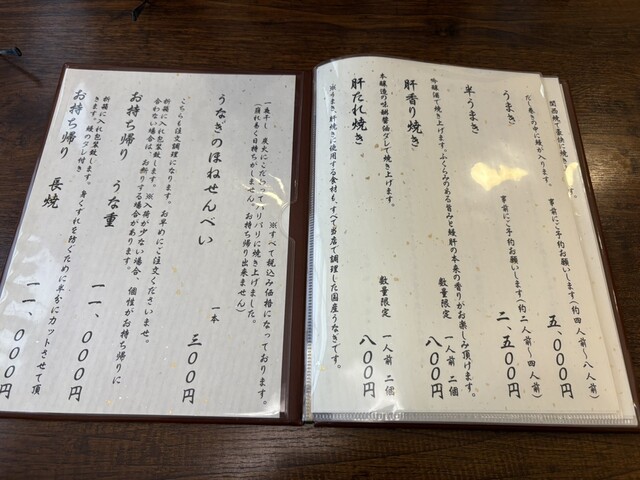 うまき
事前にご予約お願いします(約四人前〜八人前)
五、〇〇〇円
だし巻きの中に鰻が入ります。
半うまき
事前にご予約お願いします(約二人前〜四人前)
二、五〇〇円
吟醸酒で焼き上げます。ふくらみのある旨みと鰻肝の本来の香りがお楽しみ頂けます。
肝香り焼き
数量限定 一人前 二個
八〇〇円
本醸造の味噌醤油ダレで焼き上げます。
肝たれ焼き
数量限定 一人前 二個
八〇〇円
※うまき、肝焼きに使用する食材も、すべて当店で調理した国産うなぎです。
※すべて税込み価格になっております。
一夜干し、炭火にこだわってパリパリに焼き上げました。
(崩れ易く日持ちがしません。お持ち帰り出来ません)
うなぎのほねせんべい
一本
三〇〇円
こちらも注文調理になります。お早めにご注文くださいませ。
折箱に入れ包装致します。※入荷が少ない場合、個性がお持ち帰りに
合わない場合は、お断りする場合があります。
お持ち帰り うな重
一一、〇〇〇円
折箱に入れ包装致します。身くずれを防ぐために半分にカットさせて頂
きます。鰻のダレ付き
お持ち帰り 長焼
一一、〇〇〇円